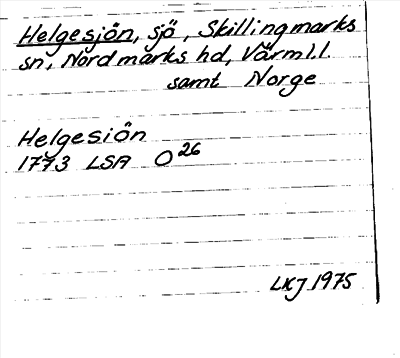 Helgesjön, sjö, Skillingmarks
sn, Nordmarks hd, Värml.l.
samt Norge
Helgesiön
1773 LSA O26
LKJ 1975